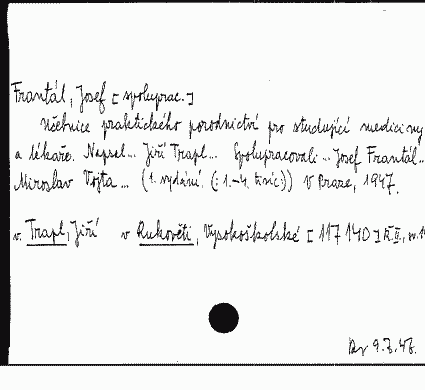 Frantál, Josef [spoluprac.]
Učebnice praktického porodnictví pro studující mediciny
a lékaře. Napsal... Jiří Trapl... Spolupracovali... Josef Frantál...
Miroslav Vojta... (1. vydání. (: 1.-4. tisíc)) V Praze, 1947.
v. Trapl, Jiří v Rukověti, Vysokoškolské [117140]
9.7.47.